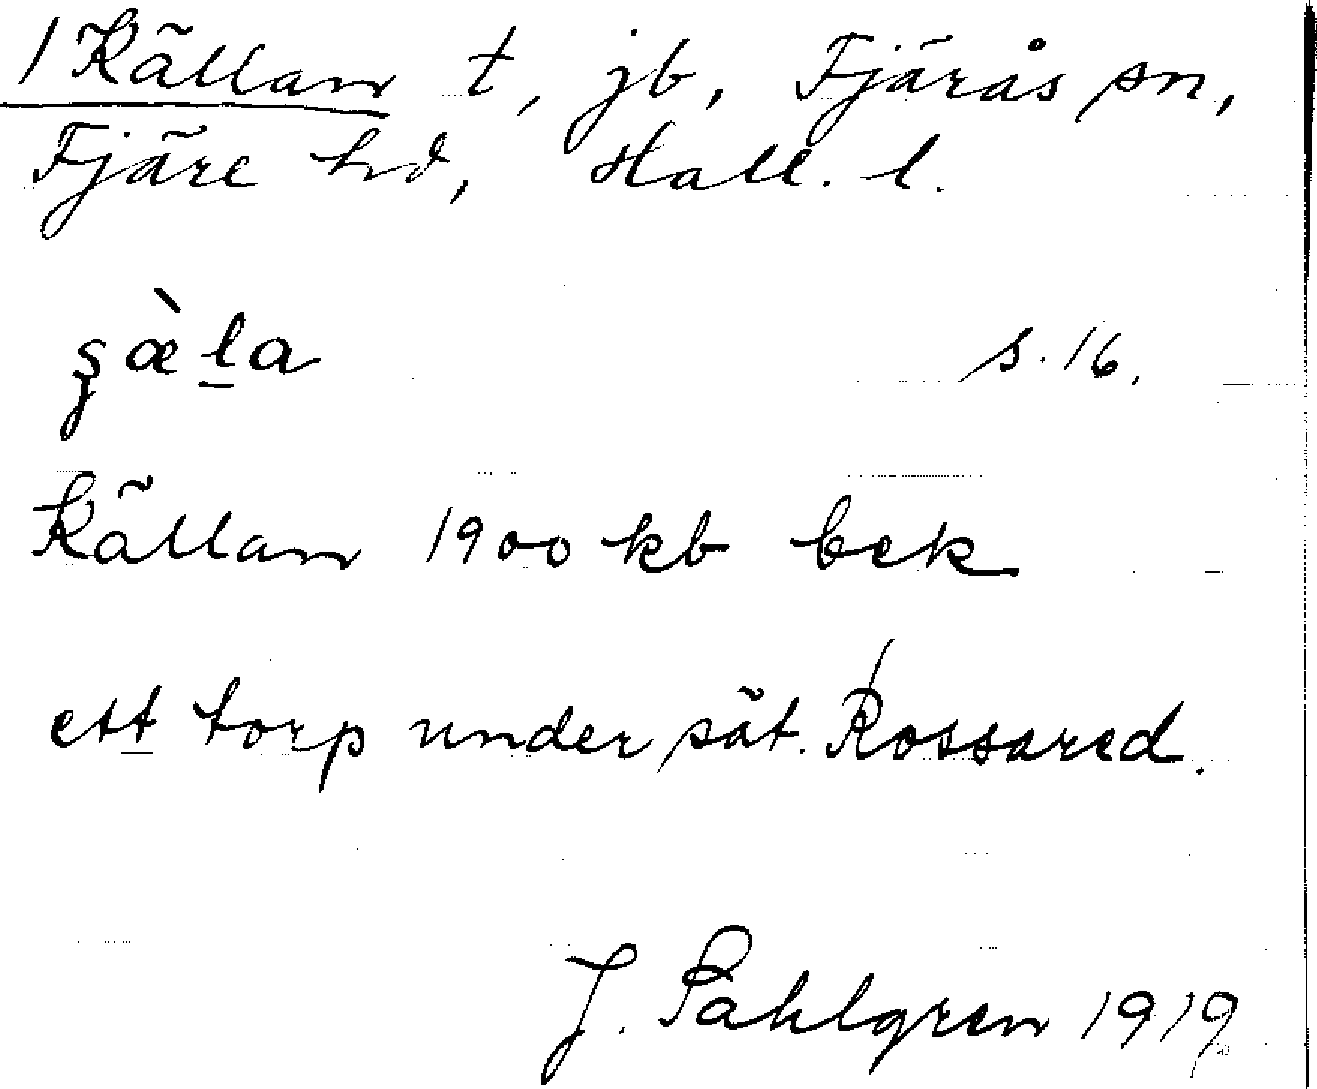 / Källan t, jb, Fjärås sn,
Fjäre hd, Hall. l.
s. 16.
Källan 1900 kb bek
ett torp under sät. Rossared.
J. Sahlgren 1919